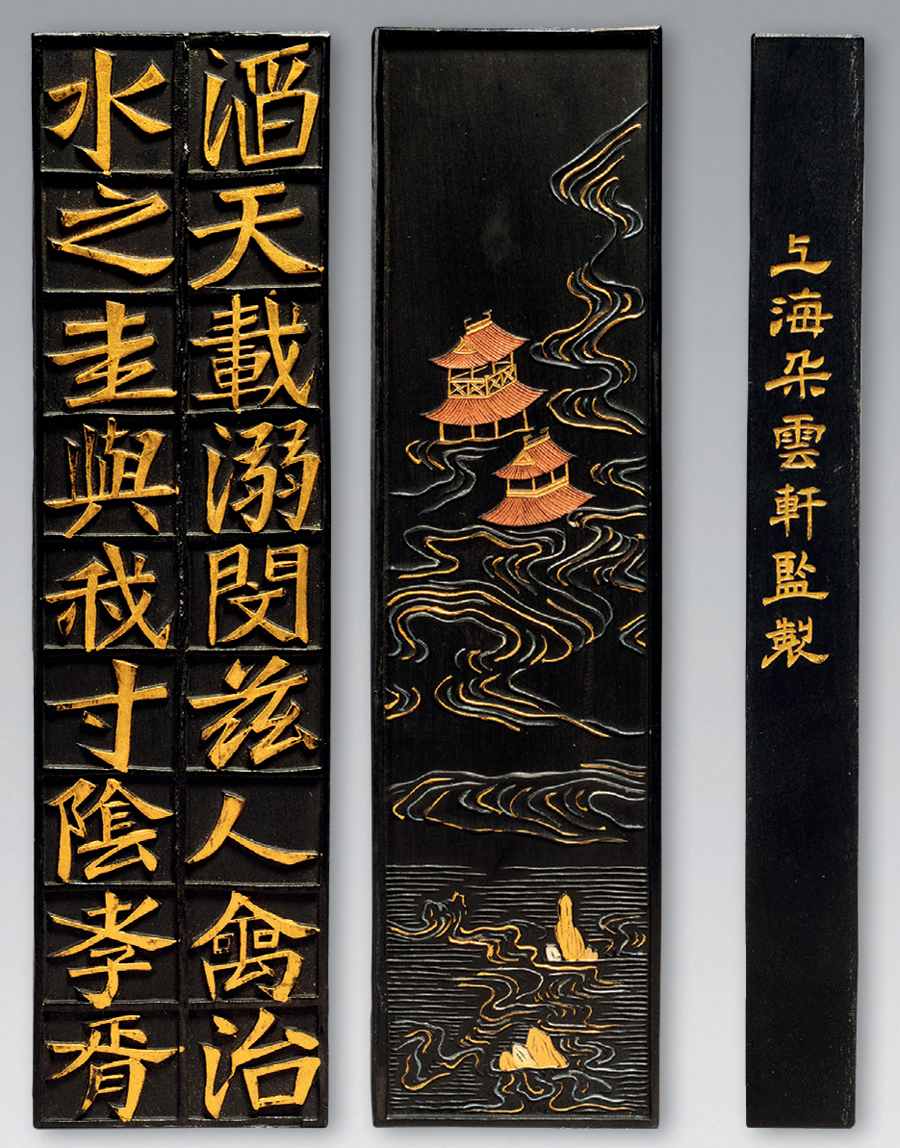 滔天載溺閔兹人禽治
水之圭與我寸陰孝胥
上海朵雲軒監製